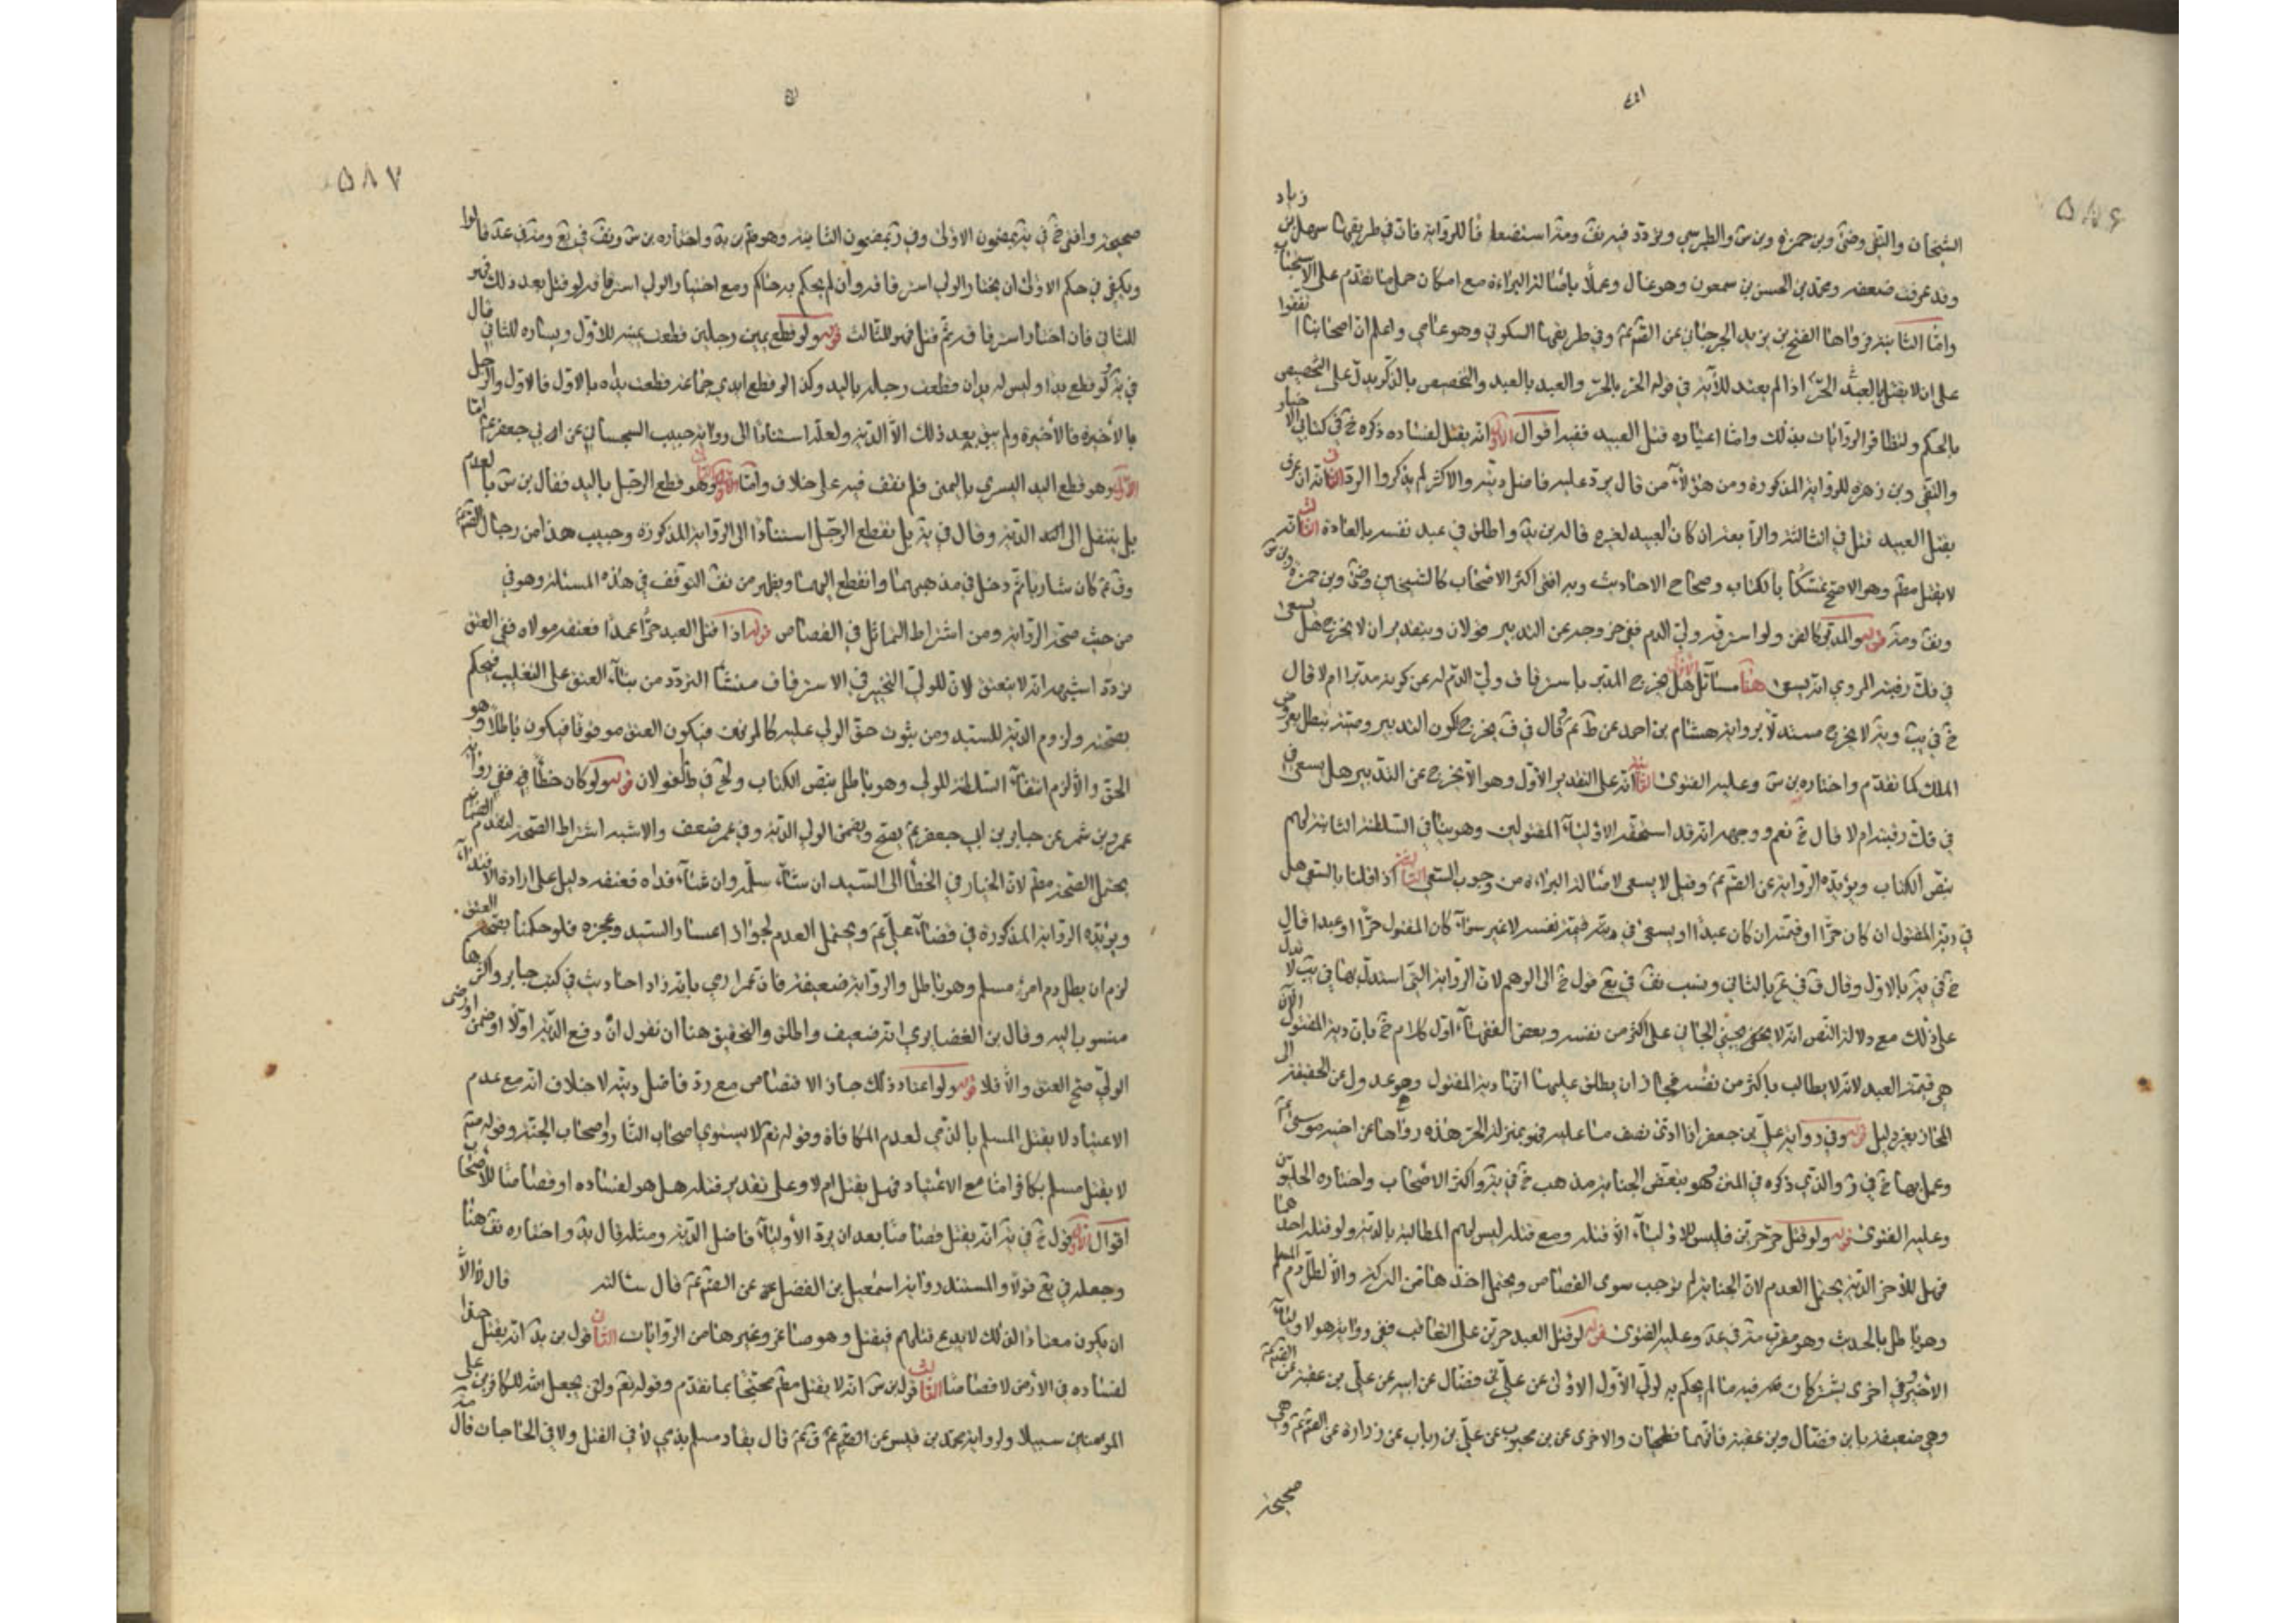 ٥٨٦
الشيخان والتقى وضى وبن حمزه وبن س والطبرسي وتردد فيه يق ومنه استضعافا للرواية فان في طريقها سهل بن زياد
وقد عرفت ضعفه ومحمد بن الحسن بن سمعون وهو غال وعملا باصالة البراءة مع امكان حمل ما تقدم على الاستحباب
واما الثانية فرواها الفتح بن يزيد الجرجاني عن القم عم وفي طريقها السكوني وهو عامي واعلم ان اصحابنا اتفقوا
على ان لا يقتل بالعبد الحر اذا لم يعتد للآية في قوله الحر بالحر والعبد بالعبد والتخصيص بالذكر يدل على التخصيص
بالحكم ولتظافر الروايات بذلك واما اعتياده قتل العبيد ففيه اقوال الاول انه يقتل لفساده ذكره خ في كتابي الاخبار
والتقى وبن زهره للرواية المذكورة ومن هؤلاء من قال يرد عليه فاضل ديته والاكثر لم يذكروا الرد الثاني انه ان عرف
بقتل العبيد قتل في الثالثة والرابعة ان كان العبيد لغيره قاله بن يد واطلق في عبد نفسه بالعادة الثالث انه
لا يقتل مطم وهو الاصح تمسكا بالكتاب وصحاح الاحاديث وبه افتى اكثر الاصحاب كالشيخين وضى وبن حمزه وبن س
ويق ومنه قوله والمدبر كالقن ولو استرقه ولي الدم ففي خروجه عن التدبير قولان وبتقدير ان لا يخرج هل يسعى
في فك رقبته المروي انه يسعى هنا مسائل الاولى هل يخرج المدبر باسترقاق ولي الدم له عن كونه مدبرا ام لا قال
خ في يب وية لا يخرج مستدلا برواية هشام بن احمد عن ظ عم وقال في ف يخرج لكون التدبير وصية تبطل بعروض
الملك كما تقدم واختاره بن س وعليه الفتوى الثانية انه على التقدير الاول وهو الا يخرج عن التدبير هل يسعى
في فك رقبته ام لا قال خ نعم ووجهه انه قد استحقه الاولياء المقتولين وهو ينافي السلطنة الثابتة لهم
بنص الكتاب ويؤيده الرواية عن القم عم وقيل لا يسعى لاصالة البراءة من وجوب السعي الثالثة اذا قلنا بالسعي هل
في دية المقتول ان كان حرا او قيمته ان كان عبدا او يسعى في دية قيمة نفسه لا غير سواء كان المقتول حرا او عبدا قال
خ في ية بالاول وقال ف في يع بالثاني ونسب يق في يع قول خ الى الوهم لان الرواية التي استدل بها في يب لا تدل
على ذلك مع دلالة النص انه لا يجني الجاني على اكثر من نفسه وبعض الفقهاء اول كلام خ بان دية المقتول الآن
هي قيمة العبد لانه لا يطالب باكثر من نفسه فجاز ان يطلق عليها انها دية المقتول وهو عدول عن الحقيقة الى
المجاز بغير دليل قوله وفي رواية علي بن جعفر اذا ادى نصف ما عليه فهو بمنزلة الحر هذه رواها عن اخيه موسى عم
وعمل بها خ في ر والذي ذكره في المتن فهو يتبعض الجناية مذهب خ في ية واكثر الاصحاب واختاره الحلي
وعليه الفتوى قوله ولو قتل حر حرين فليس للاولياء الا قتله ومع قتله ليس لهم المطالبة بالدية ولو قتله احدهما
فهل للآخر الدية يحتمل العدم لان الجناية لم توجب سوى القصاص ويحتمل اخذها من التركة والا لطل دم المسلم
وهو باطل بالحديث وهو مقرب مد في عد وعليه الفتوى قوله لو قتل العبد حرين على التعاقب ففي رواية هو لاولياء
الاخير وفي اخرى يشتركان فيه ما لم يحكم به لولي الاول الاولى عن علي بن فضال عن ابيه عن علي بن عقبة عن القم عم
وهي ضعيفة بابن فضال وبن عقبة فانهما فطحيان والاخرى عن بن محبوب عن علي بن رباب عن زرارة عن القم عم وهي
صحيحة
٥٨٧
صحيحة وافتى خ في ية بمضمون الاولى وفي ر بمضمون الثانية وهو مم بن ية واختاره بن س ويق في يع ومد في عد قالوا
ويكفي في حكم الاولى ان يختار الولي استرقاقه وان لم يحكم به حاكم ومع اختيار الولي استرقاقه لو قتل بعد ذلك فهو
للثاني فان اختار استرقاقه ثم قتل فهو للثالث قوله ولو قطع يمين رجلين قطعت يمينه للاول ويساره للثاني قال
في ية لو قطع يدا وليس له يدان قطعت رجله باليد وكذا لو قطع ايدي جماعة قطعت يداه بالاول فالاول والرجل
بالاخيرة فالاخيرة ولم يبق بعد ذلك الا الدية ولعله استنادا الى رواية حبيب السجستاني عن ابي جعفر عم اما
الاول وهو قطع اليد اليسرى باليمنى فلم نقف فيه على خلاف واما الثاني وهو قطع الرجل باليد فقال بن س بالعدم
بل ينتقل الى الدية وقال في ية بل تقطع الرجل استنادا الى الرواية المذكورة وحبيب هذا من رجال القم عم
وق عم كان شاريا ثم دخل في مذهبهما وانقطع اليهما ويظهر من يق التوقف في هذه المسئلة وهو في
من حيث صحة الرواية ومن اشتراط التماثل في القصاص قوله اذا قتل العبد حرا عمدا فعتقه مولاه ففي العتق
تردد اشبهه انه لا ينعتق لان للولي التخيير في الاسترقاق منشأ التردد من بناء العتق على التغليب فيحكم
بصحته ولزوم الدية للسيد ومن ثبوت حق الولي عليه كالمرتهن فيكون العتق موقوفا فيكون باطلا وهو
الحق والا لزم انتفاء السلطنة للولي وهو باطل بنص الكتاب ولخ في ط القولان قوله ولو كان خطأ ففي رواية
عمرو بن شمر عن جابر بن ابي جعفر عم يصح ويضمن الولي الدية وفي عمر ضعف والاشبه اشتراط الصحة لتقدم الضمان
يحتمل الصحة مطم لان الخيار في الخطأ الى السيد ان شاء سلمه وان شاء فداه فعتقه دليل على ارادة الافتداء
ويؤيده الرواية المذكورة في قضاء علي عم ويحتمل العدم لجواز اعسار السيد وعجزه فلو حكمنا بصحة العتق
لزم ان يطل دم امرئ مسلم وهو باطل والرواية ضعيفة فان عمرا رمي بانه زاد احاديث في كتب جابر واكثرها
منسوب اليه وقال بن الغضايري انه ضعيف واطلق والتحقيق هنا ان نقول ان دفع الدية اولا او ضمن او رضى
الولي صح العتق والا فلا قوله ولو اعتاد ذلك جاز الاقتصاص مع رد فاضل ديته لا خلاف انه مع عدم
الاعتياد لا يقتل المسلم بالذمي لعدم المكافاة وقوله تعم لا يستوي اصحاب النار واصحاب الجنة وقوله صم
لا يقتل مسلم بكافر اما مع الاعتياد فهل يقتل ام لا وعلى تقدير قتله هل هو لفساده او قصاصا للاصحاب
اقوال الاول قول خ في ية انه يقتل قصاصا بعد ان يرد الاولياء فاضل الدية ومثله قال يد واختاره يق هنا
وجعله في يع قولا والمستند رواية اسمعيل بن الفضل عن القم عم قال سالته قال لا الا
ان يكون معتادا لذلك لا يدع قتلهم فيقتل وهو صاغر وغيرها من الروايات الثاني قول بن يد انه يقتل حدا
لفساده في الارض لا قصاصا الثالث قول بن س انه لا يقتل مطم محتجا بما تقدم وقوله تعم ولن يجعل الله للكافرين على
المؤمنين سبيلا ولرواية محمد بن قيس عن القم عم ق عم قال يقاد مسلم بذمي لا في القتل ولا في الجراحات قال